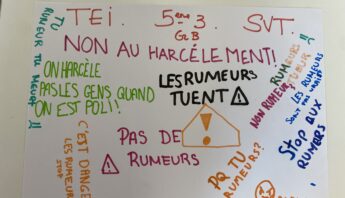 TEI. 5ème 3 SVT.
G2B
NON AU HARCÈLEMENT!
TU
RUMEUR TU MEURT !!
ON HARCÈLE
PAS LES GENS QUAND
ON EST POLI!
LES RUMEURS
TUENT ⚠
RUMEURS
NON RUMEUR
LES RUMEURS
SONT PAS
STOP AUX
RUMEURS
C'EST DANGE
LES RUMEURS
STOP
PAS DE
RUMEURS
PQ TU
RUMEURS?